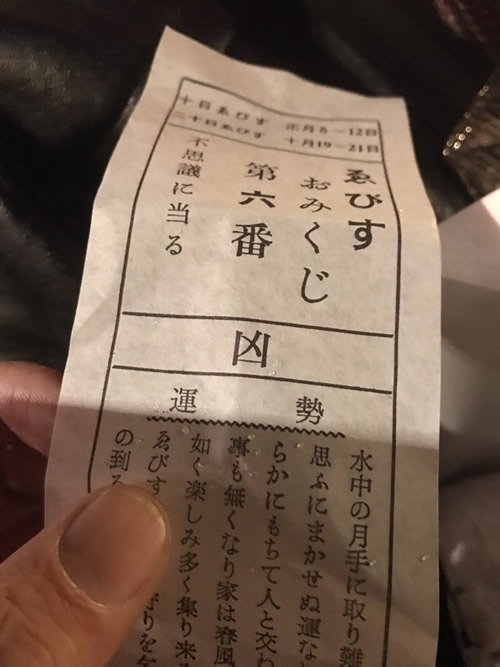 十日ゑびす 正月8〜12日
二十日ゑびす 十月19〜21日
ゑびす
おみくじ
第六番
不思議に当る
凶
運勢
水中の月手に取り難
思ふにまかせぬ運な
らかにもちて人と交わ
事も無くなり家は春風
如く楽しみ多く集り来
ゑびす
の到る